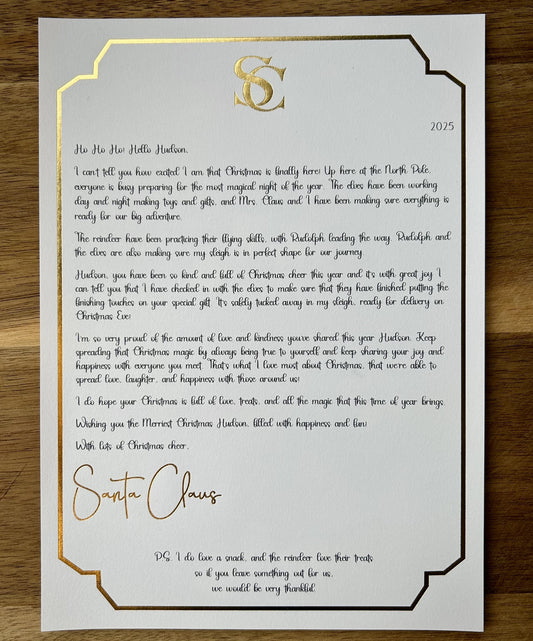 SC
2025
Ho Ho Ho! Hello Hudson,
I can't tell you how excited I am that Christmas is finally here! Up here at the North Pole,
everyone is busy preparing for the most magical night of the year. The elves have been working
day and night making toys and gifts, and Mrs. Claus and I have been making sure everything is
ready for our big adventure.
The reindeer have been practicing their flying skills, with Rudolph leading the way. Rudolph and
the elves are also making sure my sleigh is in perfect shape for our journey.
Hudson, you have been so kind and full of Christmas cheer this year and it's with great joy I
can tell you that I have checked in with the elves to make sure that they have finished putting the
finishing touches on your special gift. It's safely tucked away in my sleigh, ready for delivery on
Christmas Eve!
I'm so very proud of the amount of love and kindness you've shared this year Hudson. Keep
spreading that Christmas magic by always being true to yourself and keep sharing your joy and
happiness with everyone you meet. That's what I love most about Christmas, that we're able to
spread love, laughter, and happiness with those around us!
I do hope your Christmas is full of love, treats, and all the magic that this time of year brings.
Wishing you the Merriest Christmas Hudson, filled with happiness and fun!
With lots of Christmas cheer,
Santa Claus
P.S. I do love a snack, and the reindeer love their treats
so if you leave something out for us,
we would be very thankful.